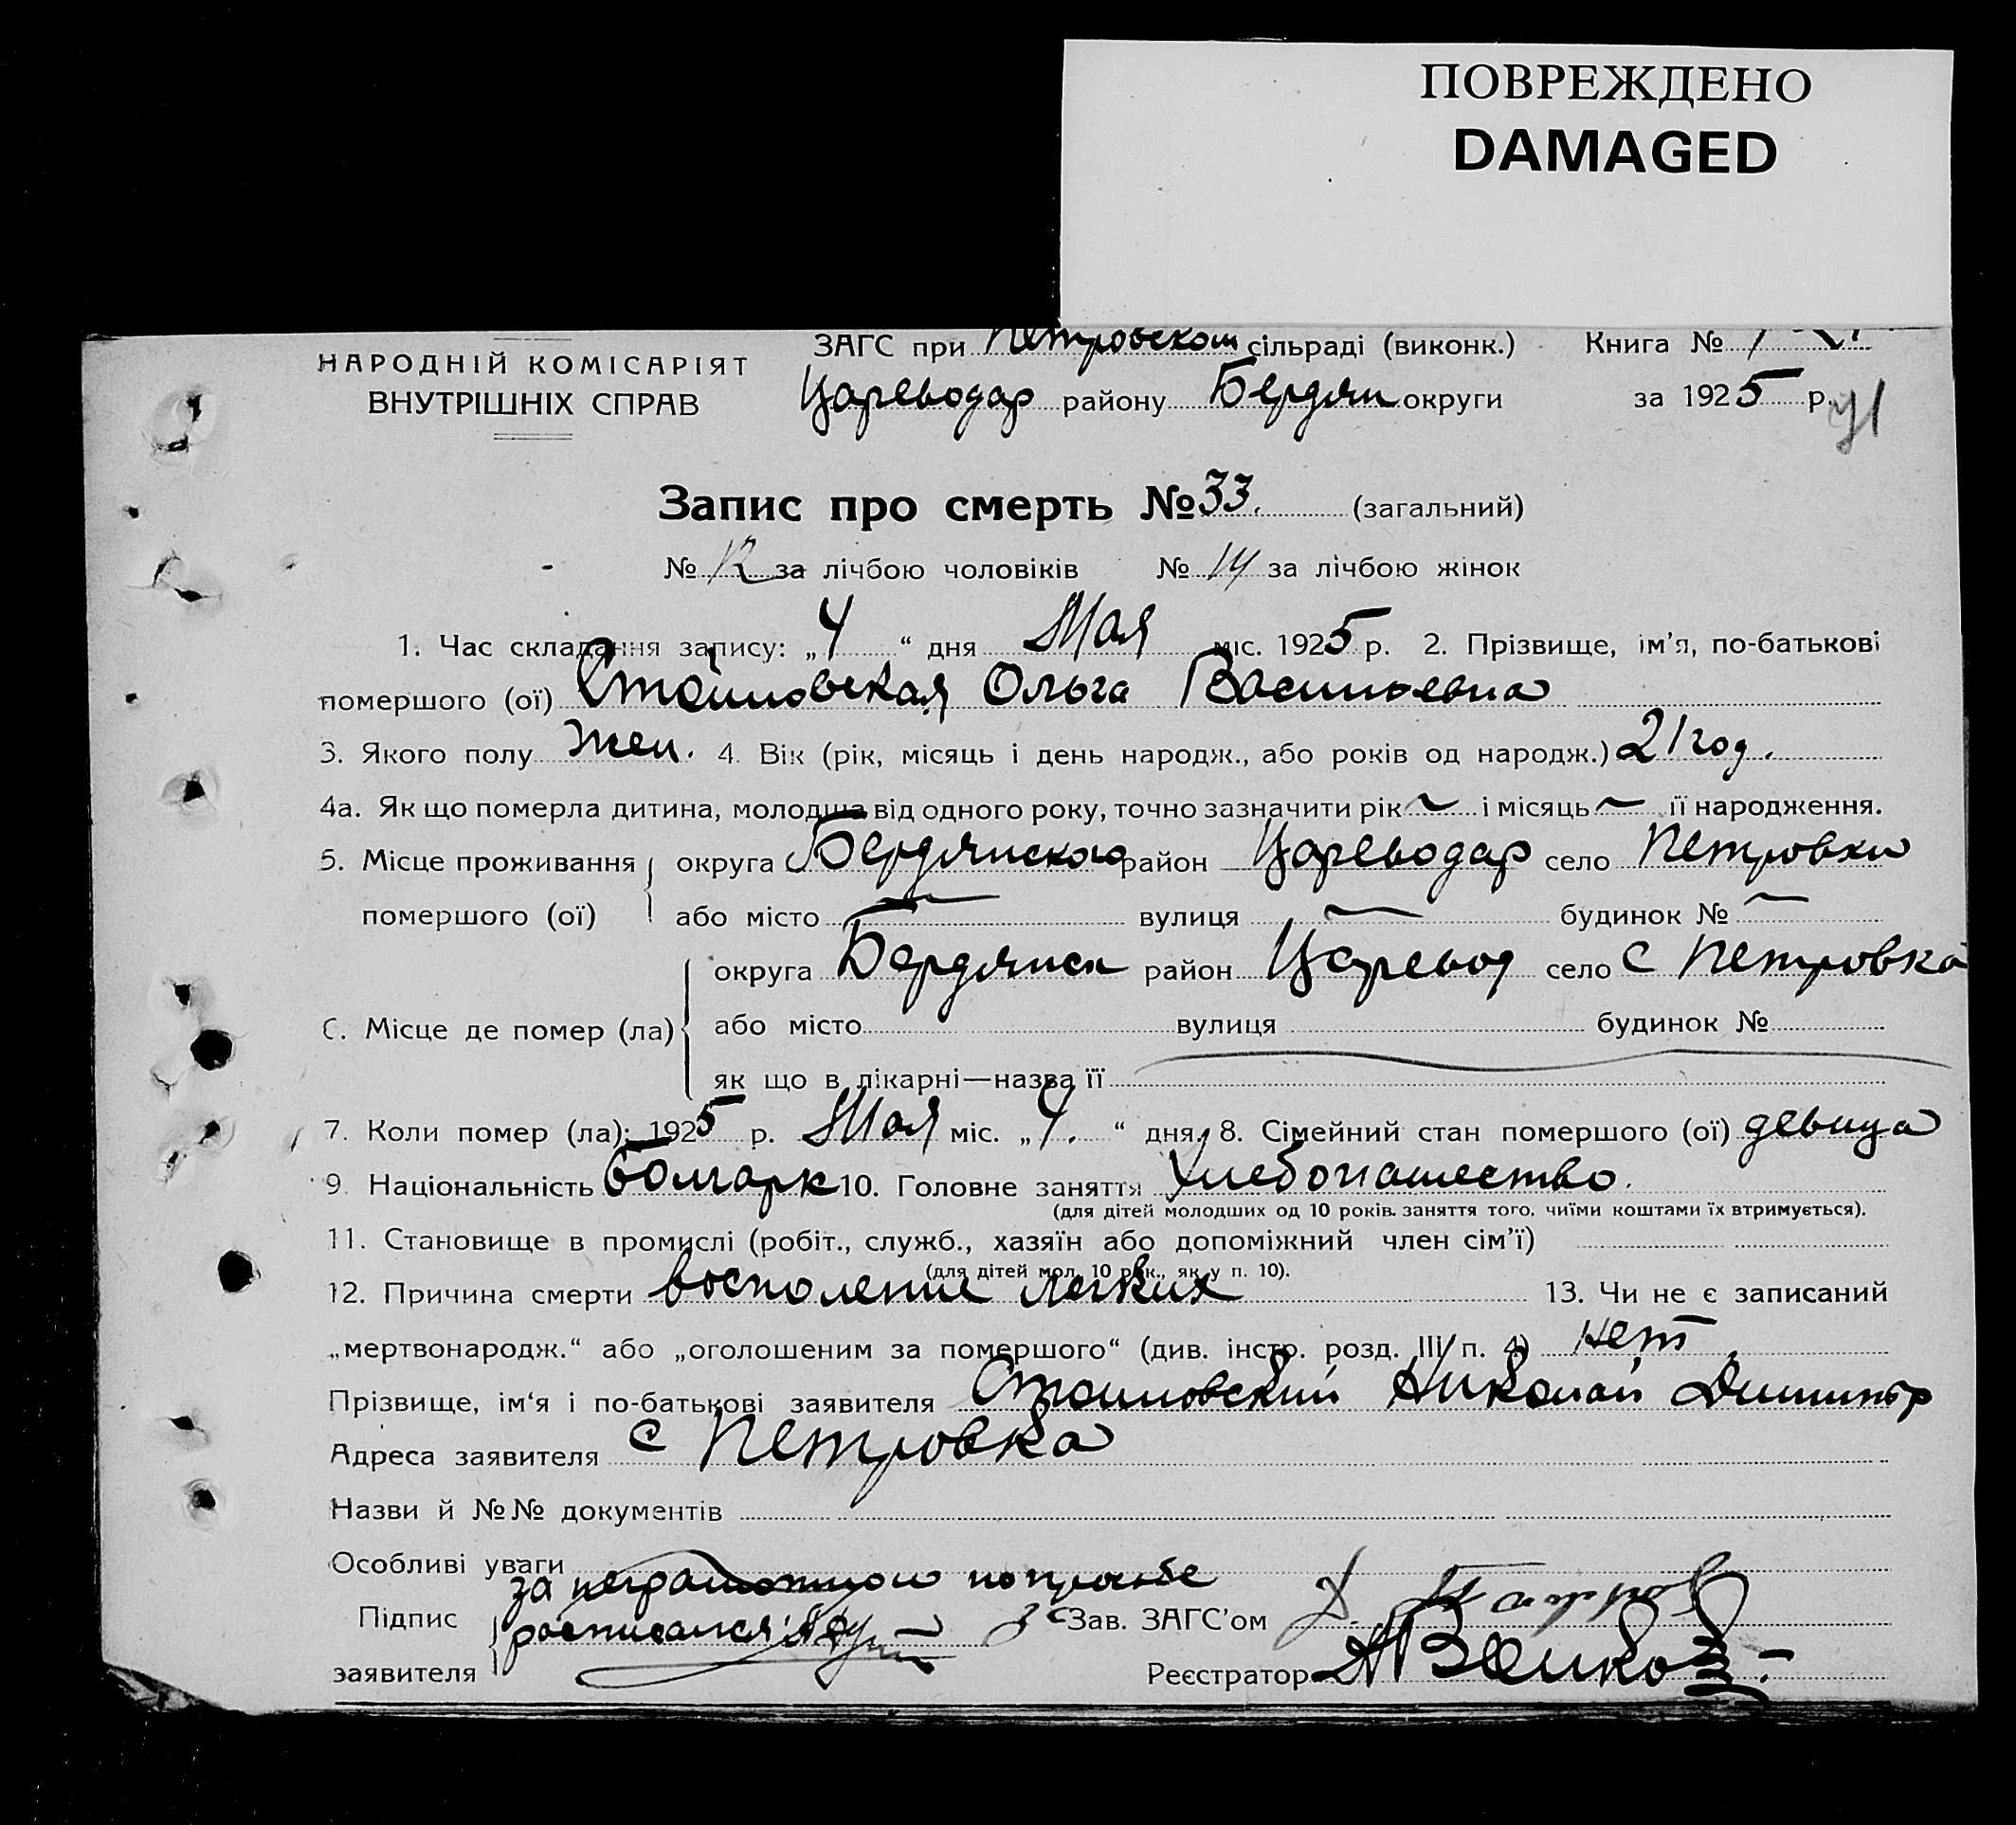 ПОВРЕЖДЕНО
DAMAGED
НАРОДНІЙ КОМІСАРІЯТ
ВНУТРІШНІХ СПРАВ
ЗАГС при Петровском сільраді (виконк.) Книга №
Цареводар району Бердян округи за 1925 р.
Запис про смерть № 33. (загальний)
№ 12 за лічбою чоловіків № 14 за лічбою жінок
1. Час складання запису: „4“ дня Мая міс. 1925 р. 2. Прізвище, ім’я, по-батькові
помершого (ої) Стойловская Ольга Васильевна
3. Якого полу жен. 4. Вік (рік, місяць і день народж., або років од народж.) 21 год.
4а. Як що померла дитина, молодша від одного року, точно зазначити рік ~ і місяць ~ її народження.
5. Місце проживання округа Бердянского район Цареводар село Петровки
помершого (ої) або місто — вулиця — будинок № —
округа Бердянск район Царевод село с Петровка
С. Місце де помер (ла) або місто вулиця будинок №
як що в лікарні—назва її
7. Коли помер (ла): 1925 р. Мая міс. „4.“ дня. 8. Сімейний стан помершого (ої) девица
9. Національність Болгарк 10. Головне заняття Хлебопашество.
(для дітей молодших од 10 років. заняття того, чиїми коштами їх втримується).
11. Становище в промислі (робіт., служб., хазяїн або допоміжний член сім’ї)
(для дітей мол. 10 рок., як у п. 10).
12. Причина смерти восполение легких 13. Чи не є записаний
„мертвонародж.“ або „оголошеним за помершого“ (див. інстр. розд. III п. 4) нет
Прізвище, ім‘я і по-батькові заявителя Стоиловский Николай Димитър
Адреса заявителя с Петровка
Назви й №№ документів
Особливі уваги
за неграмотного по просьбе
Підпис расписался Зав. ЗАГС’ом
заявителя Реєстратор